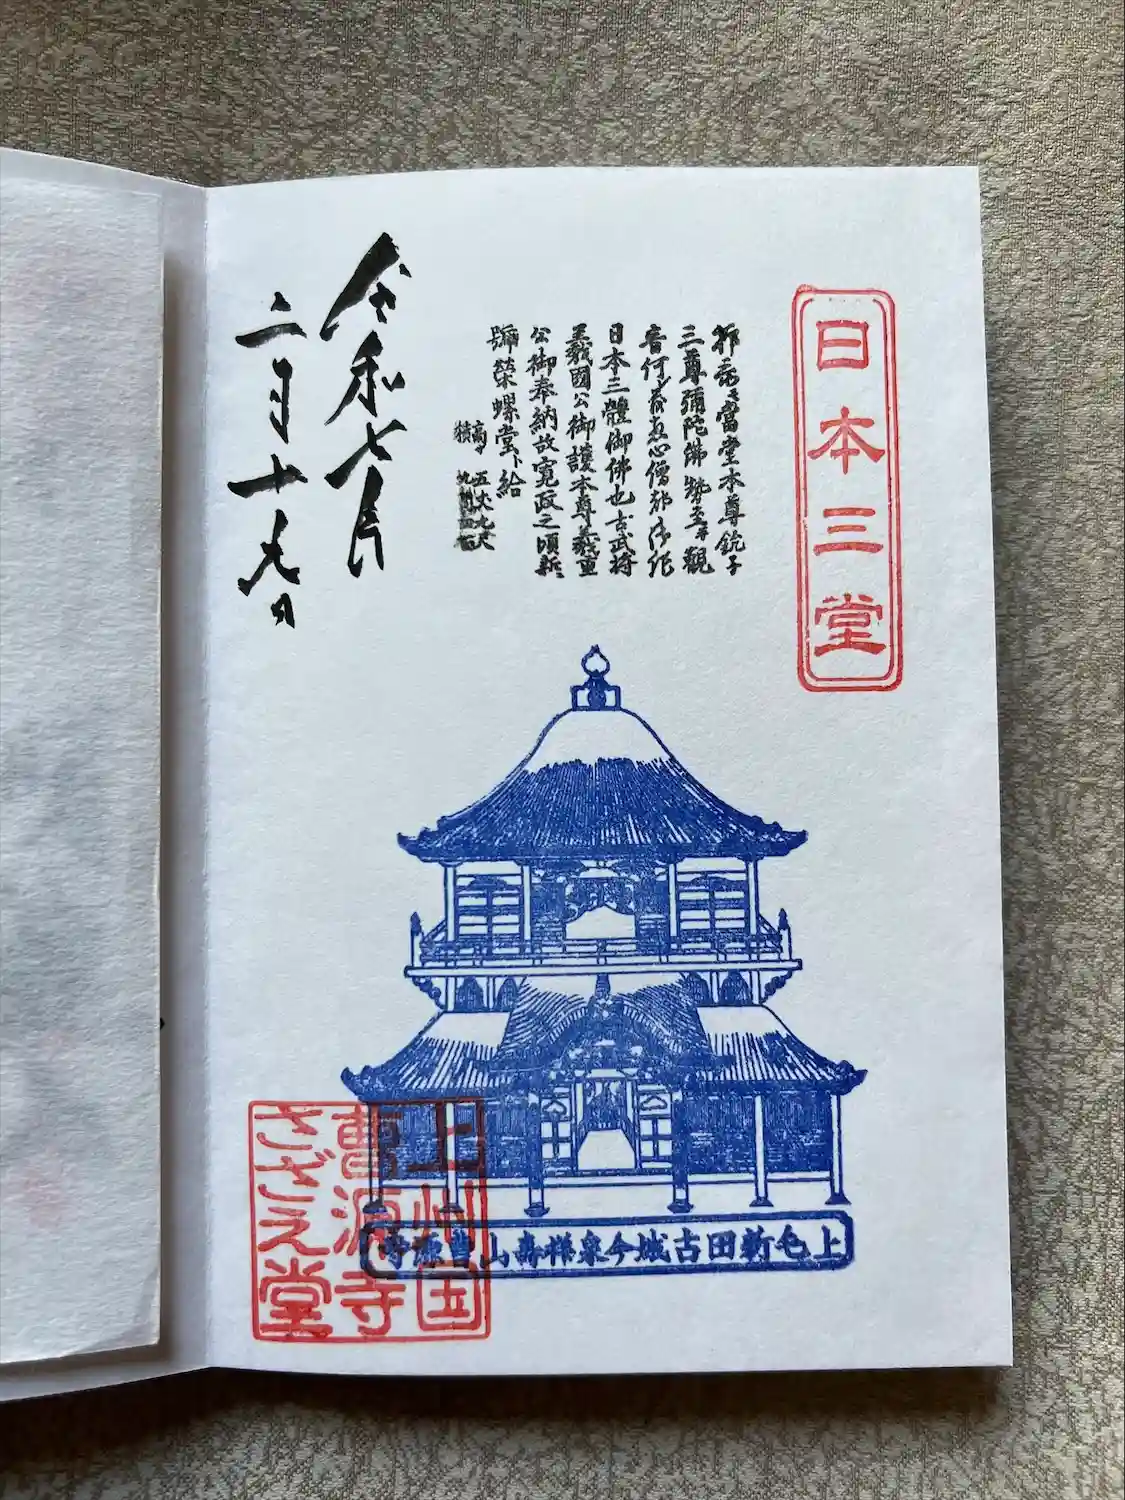 日本三堂
當堂本尊
三尊彌陀佛勢至觀
音何茂恵心僧都
日本三體御佛也古武將
義國公御護本尊義重
公御奉納故寛政之頃新
榮螺堂給
高サ五丈九尺
横
令和七年
二月十九日
上毛新田古城今泉祥壽山曹源寺
上州国
曹源寺
さざえ堂